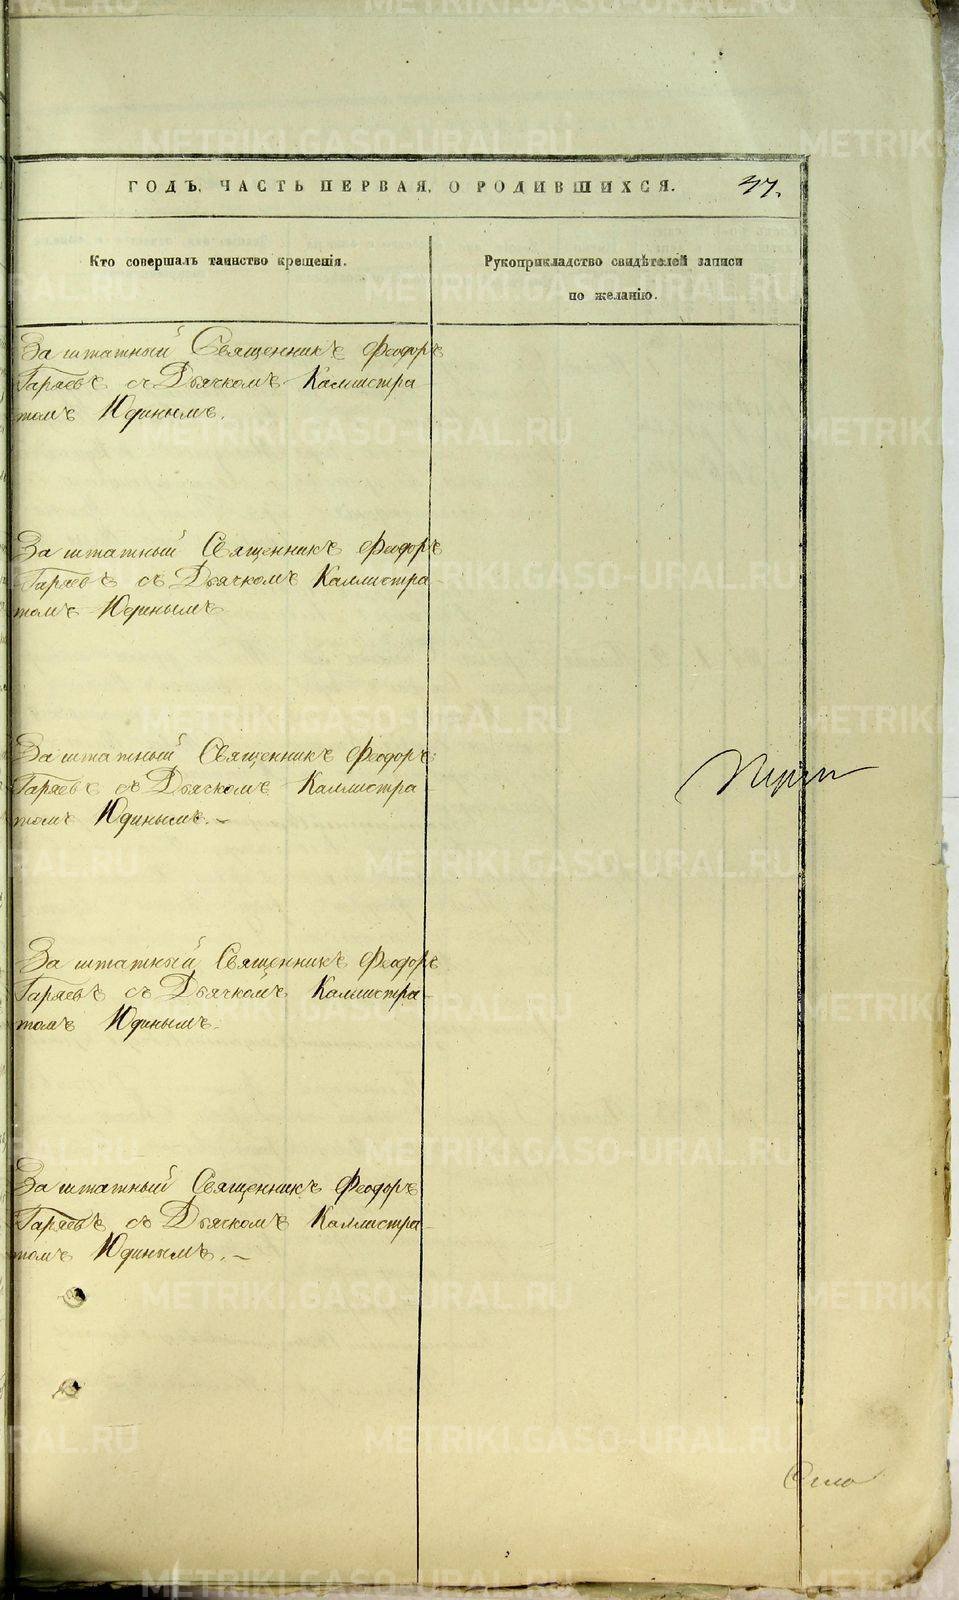 ГОДЪ, ЧАСТЬ ПЕРВАЯ, О РОДИВШИХСЯ. 37.
Кто совершалъ таинство крещенія.
Рукоприкладство свидѣтелей записи
по желанію.
Заштатный Священникъ Феодоръ
Гаряевъ съ Дьячкомъ Каллистра
томъ Юдинымъ.
Заштатный Священникъ Феодоръ
Гаряевъ съ Дьячкомъ Каллистра-
томъ Юдинымъ
Заштатный Священникъ Феодоръ
Гаряевъ съ Дьячкомъ Каллистра
томъ Юдинымъ. –
Заштатный Священникъ Феодоръ
Гаряевъ съ Дьячкомъ Каллистра-
томъ Юдинымъ.
Заштатный Священникъ Феодоръ
Гаряевъ съ Дьячкомъ Каллистра-
томъ Юдинымъ. –
METRIKI.GASO-URAL.RU